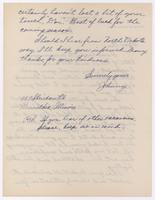 certainly haven't lost a bit of your
touch, Don. Best of luck for the
coming season.
Should I hear from North Dakota
way I'll keep you informed. Many
thanks for your kindness.
Sincerely yours
Johnny
Illinois
P.S. If you hear of other vacancies
please keep me in mind.